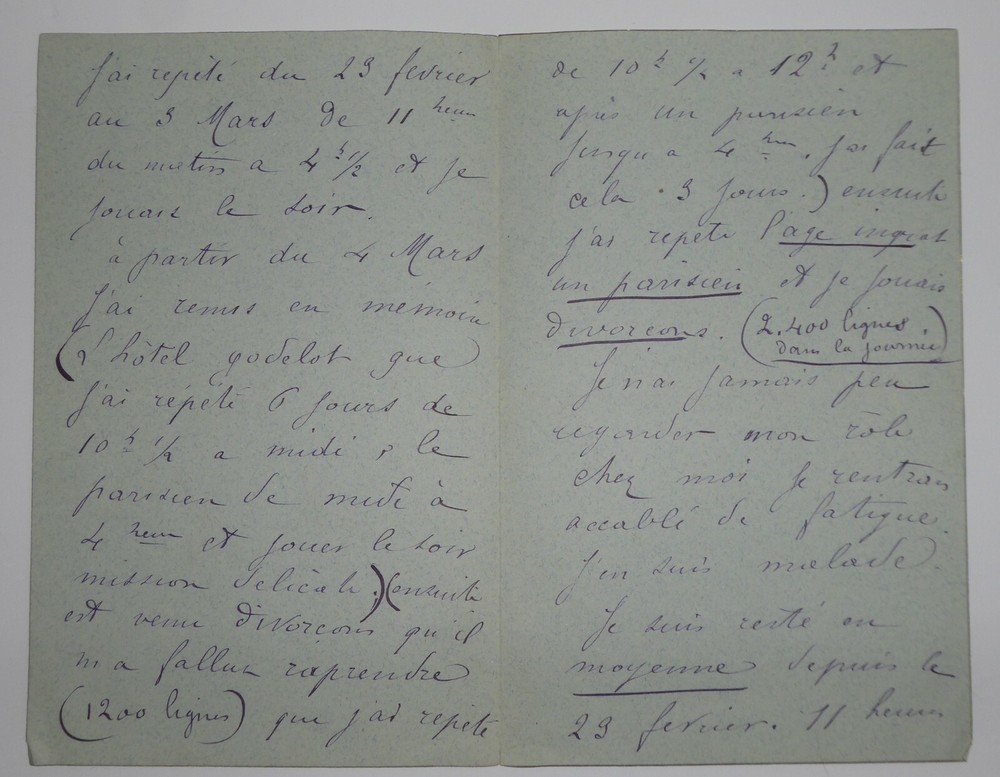 j'ai repété du 23 fevrier
au 3 Mars de 11 heures
du matin a 4 h 1/2 et je
jouais le soir.
à partir du 4 Mars
j'ai remis en mémoire
(L'hôtel godelot que
j'ai répété 6 jours de
10 h 1/2 a midi, le
parisien de midi à
4 heures et jouer le soir
mission delicate.) (ensuite
est venu divorcons qu'il
m a fallut raprendre
(1200 lignes) que j'ai repété
de 10 h 1/2 a 12 h et
après un parisien
jusqu a 4 heures. j'ai fait
cela 3 jours.) ensuite
j'ai repeté l'age ingrat
un parisien et je jouais
divorcons. (2.400 lignes
dans la journée)
Je n'ai jamais peu
regarder mon rôle
chez moi je rentrais
accablé de fatigue.
j'en suis malade.
Je suis resté en
moyenne depuis le
23 fevrier. 11 heures